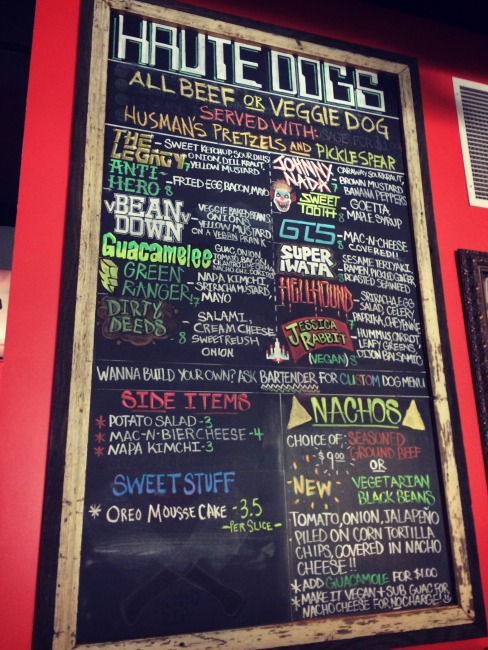 HAUTE DOGS
ALL BEEF OR VEGGIE DOG
SERVED WITH:
HUSMAN'S PRETZELS AND PICKLE SPEAR
THE LEGACY 7 - SWEET KETCHUP, SOUR DILLS
ONION, DILL KRAUT,
YELLOW MUSTARD
ANTI-HERO 8 FRIED EGG, BACON, MAYO
VBEANV DOWN 7 VEGGIE BAKED BEANS
ONIONS
YELLOW MUSTARD
ON A VEGAN FRANK
GUACAMELEE 8 GUAC, ONION,
TOMATO,
NACHO
GREEN RANGER 7 NAPA KIMCHI,
SRIRACHA MUSTARD,
MAYO
DIRTY DEEDS 8 SALAMI,
CREAM CHEESE
SWEET RELISH
ONION
JOHNNY NADA 7 CARAWAY SOURKRAUT,
BROWN MUSTARD
BANANA PEPPERS
SWEET TOOTH 8 GOETTA
MAPLE SYRUP
GTS 8 MAC-N-CHEESE
COVERED!!
SUPER IWATA SESAME TERIYAKI,
RAMEN, PICKLE GINGER
ROASTED SEAWEED
HELLHOUND SRIRACHA EGG
SALAD, CELERY,
PAPRIKA,
JESSICA RABBIT (VEGAN) 8 HUMMUS, CARROT
LEAFY GREENS,
DIJON BALSAMIC
WANNA BUILD YOUR OWN? ASK BARTENDER FOR CUSTOM DOG MENU
SIDE ITEMS
* POTATO SALAD - 3
* MAC-N-BIERCHEESE - 4
* NAPA KIMCHI - 3
SWEET STUFF
* OREO MOUSSE CAKE - 3.5
- PER SLICE -
NACHOS
CHOICE OF: SEASONED
$9.00 GROUND BEEF
OR
- NEW - VEGETARIAN
BLACK BEANS
TOMATO, ONION, JALAPEÑO
PILED ON CORN TORTILLA
CHIPS, COVERED IN NACHO
CHEESE!!
* ADD GUACAMOLE FOR $1.00
* MAKE IT VEGAN & SUB GUAC FOR
NACHO CHEESE FOR NO CHARGE!